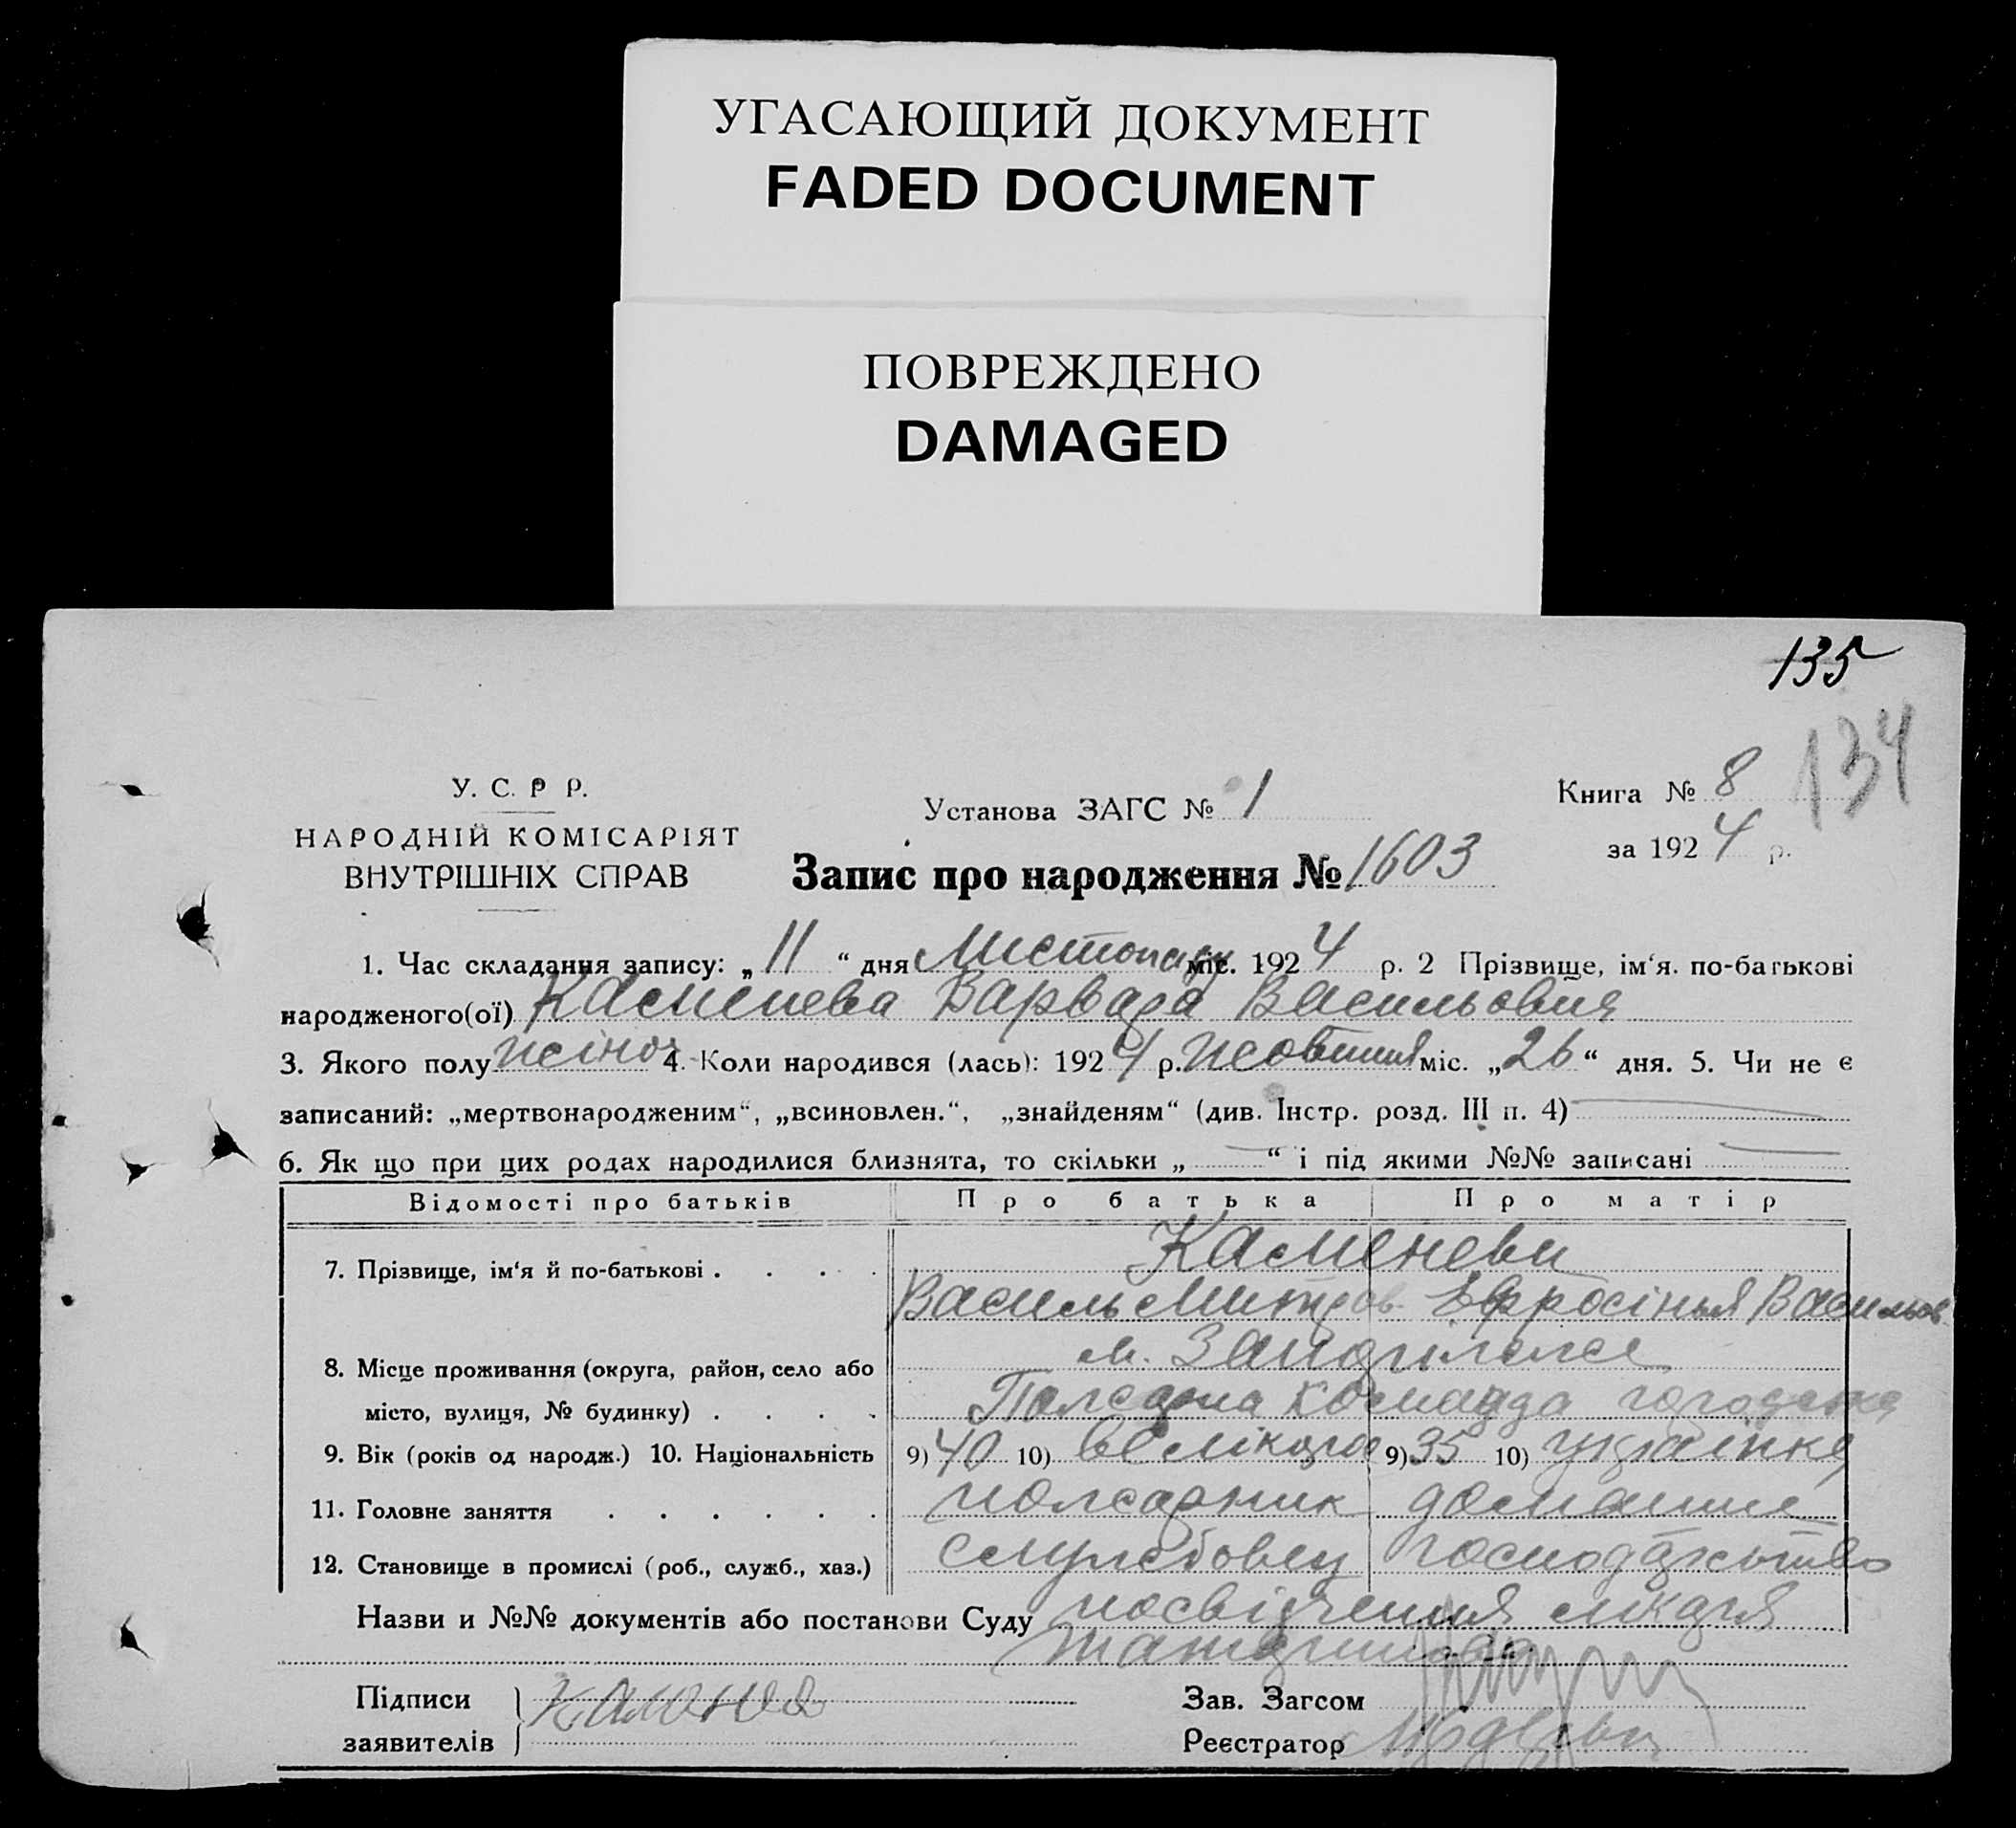 УГАСАЮЩИЙ ДОКУМЕНТ
FADED DOCUMENT
ПОВРЕЖДЕНО
DAMAGED
135
134
У. С. Р Р.
НАРОДНІЙ КОМІСАРІЯТ
ВНУТРІШНІХ СПРАВ
Установа ЗАГС № 1
Запис про народження № 1603
Книга № 8
за 1924 р.
1. Час складання запису: „11“ дня Листопаду міс. 1924 р. 2 Прізвище, ім‘я. по-батькові
народженого(ої) Каменева Варвара Васильовна
3. Якого полу жіноч. 4. Коли народився (лась): 1924 р. жовтня міс. „26“ дня. 5. Чи не є
записаний: „мертвонародженим“, „всиновлен.“, „знайденям“ (див. Інстр. розд. III п. 4)
6. Як що при цих родах народилися близнята, то скільки „ “ і під якими №№ записані
Відомості про батьків Про батька Про матір
7. Прізвище, ім‘я й по-батькові . . . . Каменеви
Василь Митров. Ефросінья Васильов.
8. Місце проживання (округа, район, село або м. Запоріжже
місто, вулиця, № будинку) . . . . Пожарна команда
9. Вік (років од народж.) 10. Національність 9) 40 10) 9) 35 10) українка
11. Головне заняття . . . . . . пожарник домашнє
12. Становище в промислі (роб., служб., хаз.) службовец господарство
Назви и №№ документів або постанови Суду посвідчення лікаря
Підписи
заявителів } Каменев
Зав. Загсом
Реєстратор